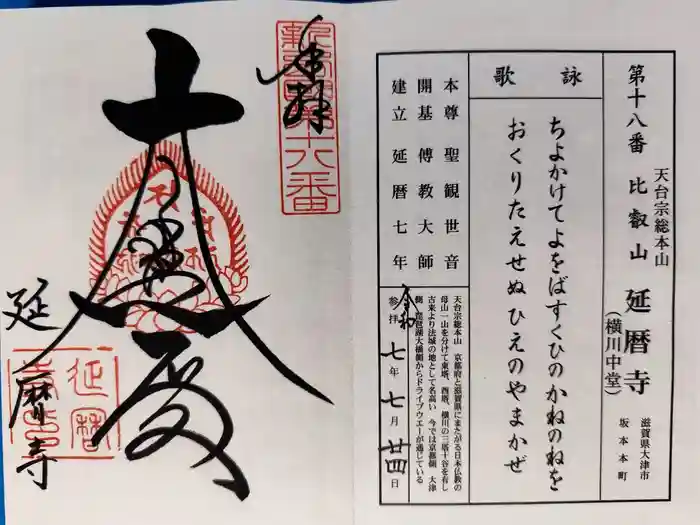 第十八番 比叡山 延暦寺
天台宗総本山
(横川中堂)
滋賀県大津市
坂本本町
詠歌
ちよかけてよをばすくひのかねのねを
おくりたえせぬひえのやまかぜ
本尊 聖観世音
開基 傳教大師
建立 延暦七年
天台宗総本山 京都府と滋賀県にまたがる日本仏教の
母山一山を分けて東塔、西塔、横川の三塔十谷を有し
古来より法城の地として名高い 今では京都側、大津
側、琵琶湖大橋側からドライブウエーが通じている
令和
参拝 七年 七月 廿四日
奉拝
延暦寺
延暦